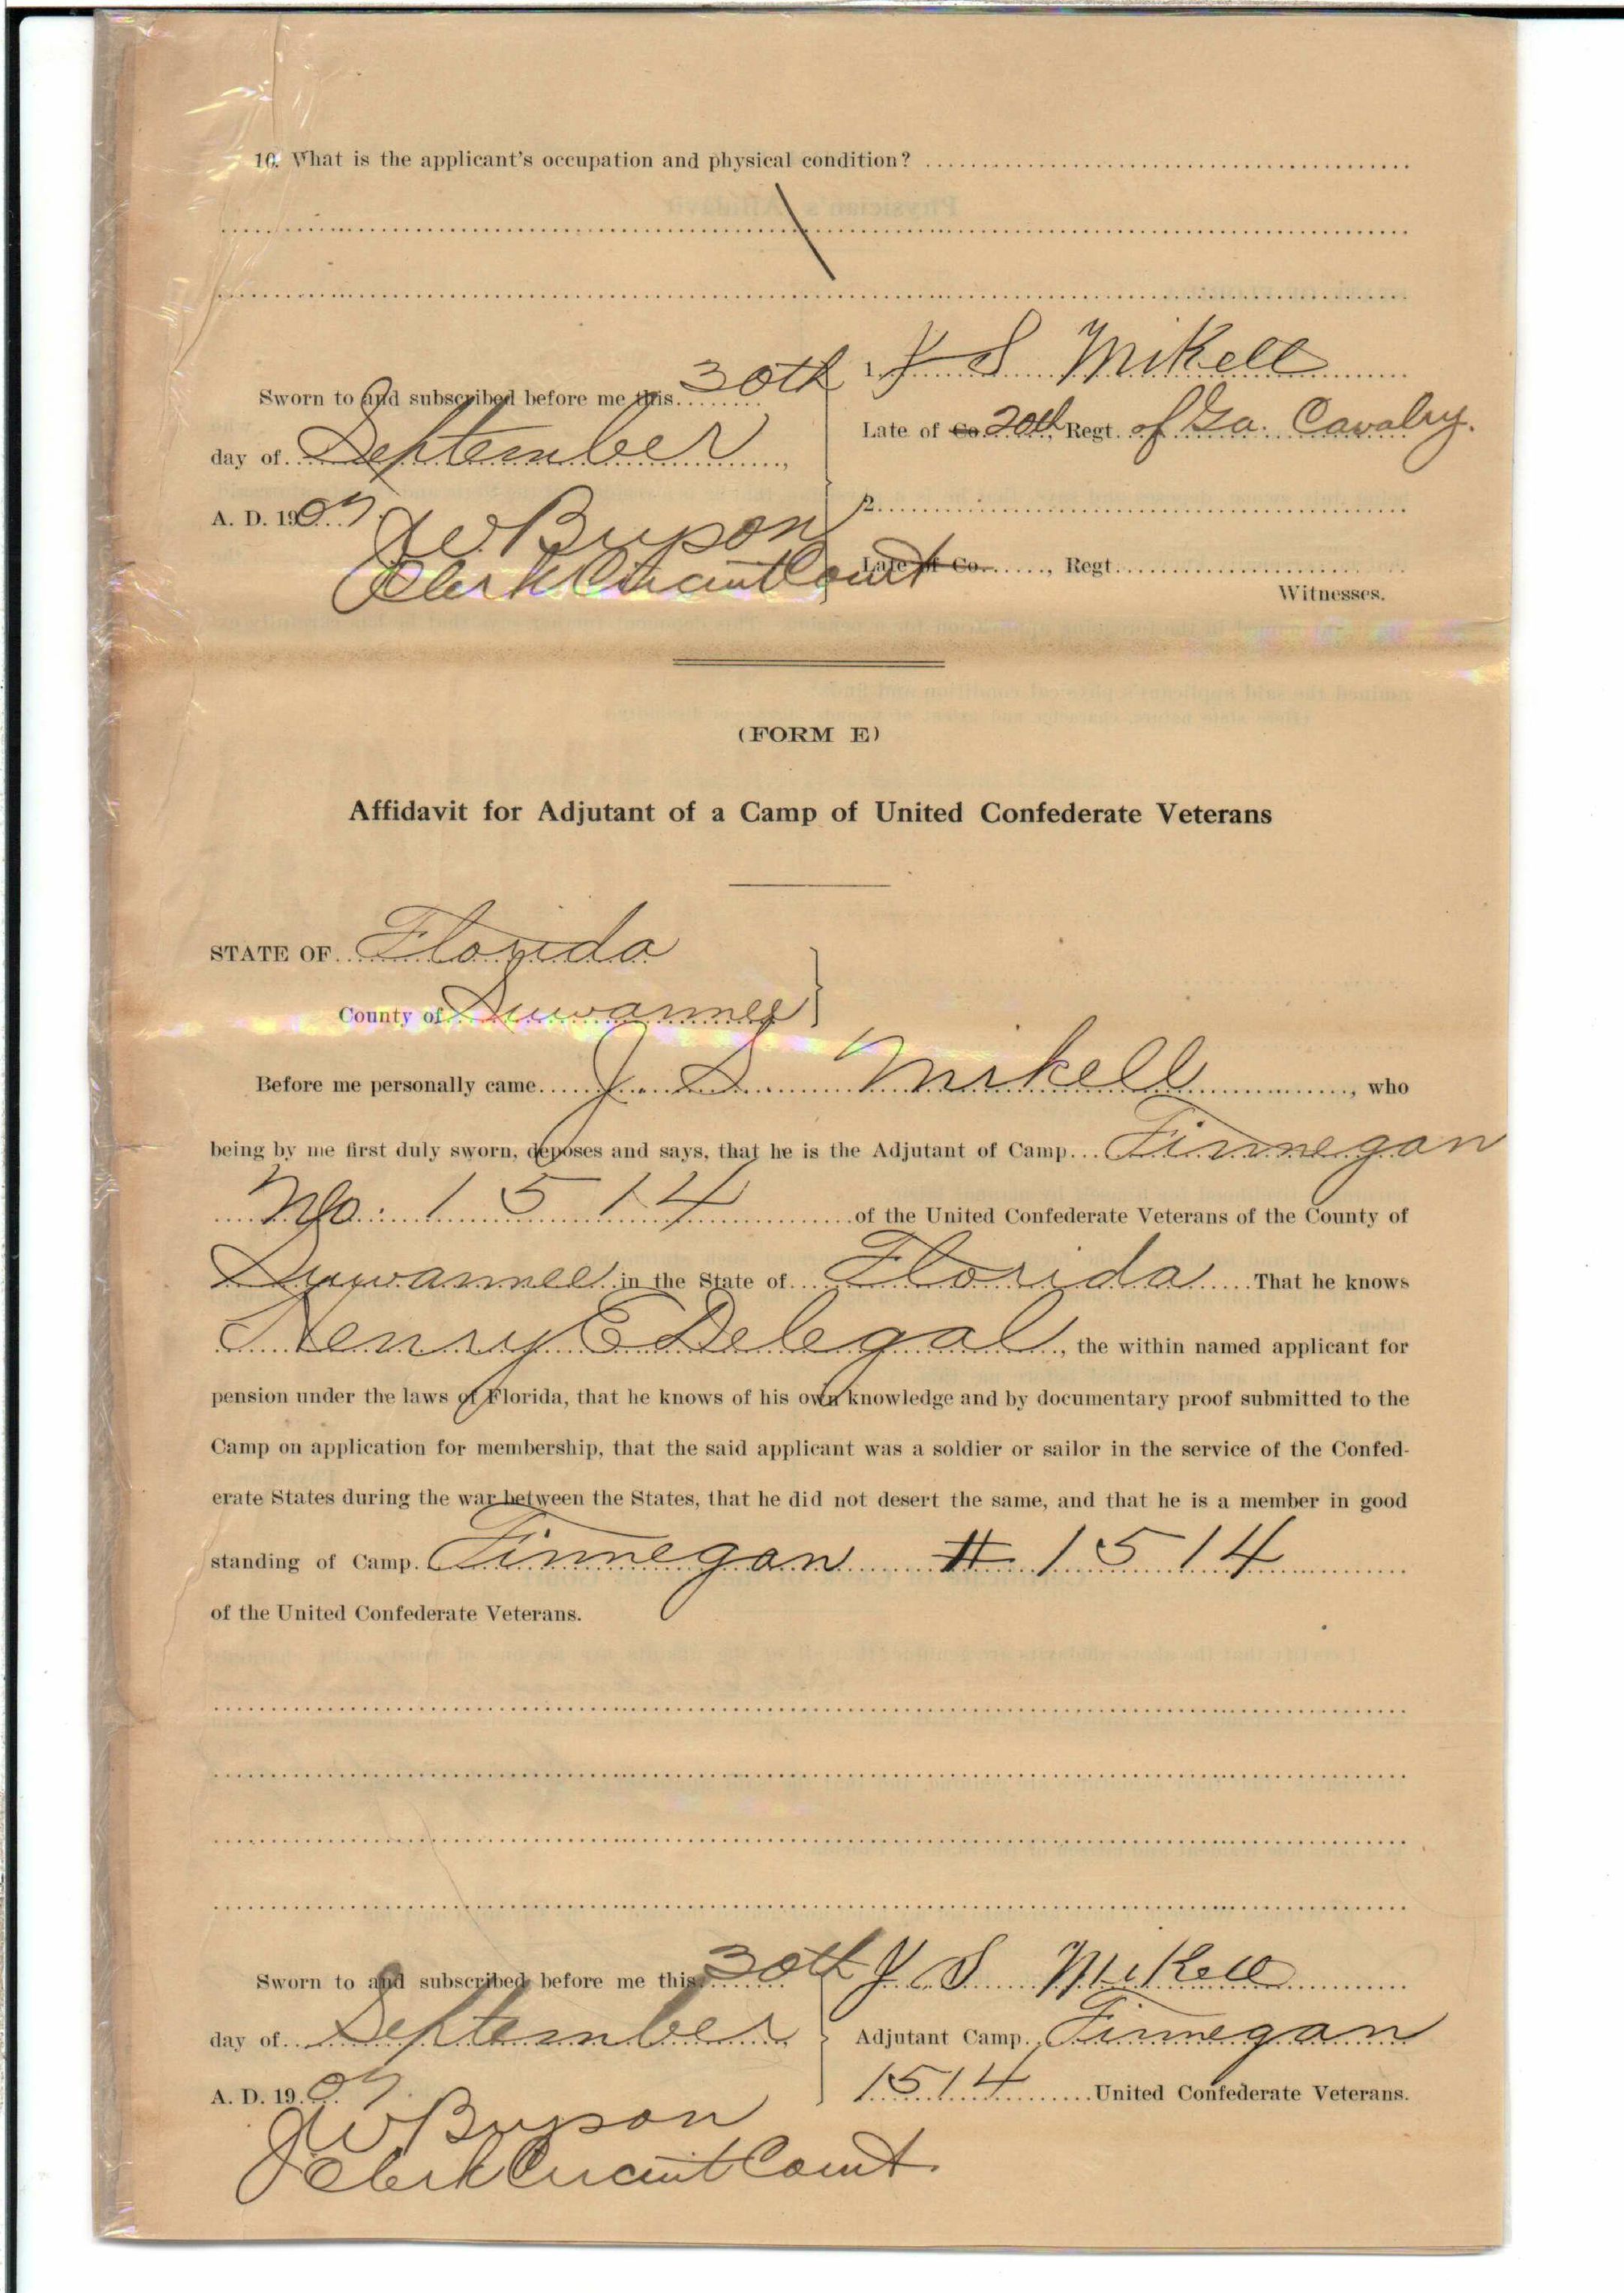 10. What is the applicant's occupation and physical condition?
Sworn to and subscribed before me this 30th
day of September,
A. D. 1907.
J W Bryson
Clerk Circuit Court
1. J S Mikell
Late of Co. 20th, Regt. of Ga. Cavalry.
2.
Late of Co. , Regt.
Witnesses.
(FORM E)
Affidavit for Adjutant of a Camp of United Confederate Veterans
STATE OF Florida
County of Suwannee
Before me personally came J. S. Mikell, who
being by me first duly sworn, deposes and says, that he is the Adjutant of Camp Finnegan
No. 1514 of the United Confederate Veterans of the County of
Suwannee in the State of Florida That he knows
Henry E Delegal, the within named applicant for
pension under the laws of Florida, that he knows of his own knowledge and by documentary proof submitted to the
Camp on application for membership, that the said applicant was a soldier or sailor in the service of the Confed-
erate States during the war between the States, that he did not desert the same, and that he is a member in good
standing of Camp. Finnegan # 1514
of the United Confederate Veterans.
Sworn to and subscribed before me this 30th
day of September
A. D. 1907.
J W Bryson
Clerk Circuit Court.
J. S. Mikell
Adjutant Camp. Finnegan
1514 United Confederate Veterans.